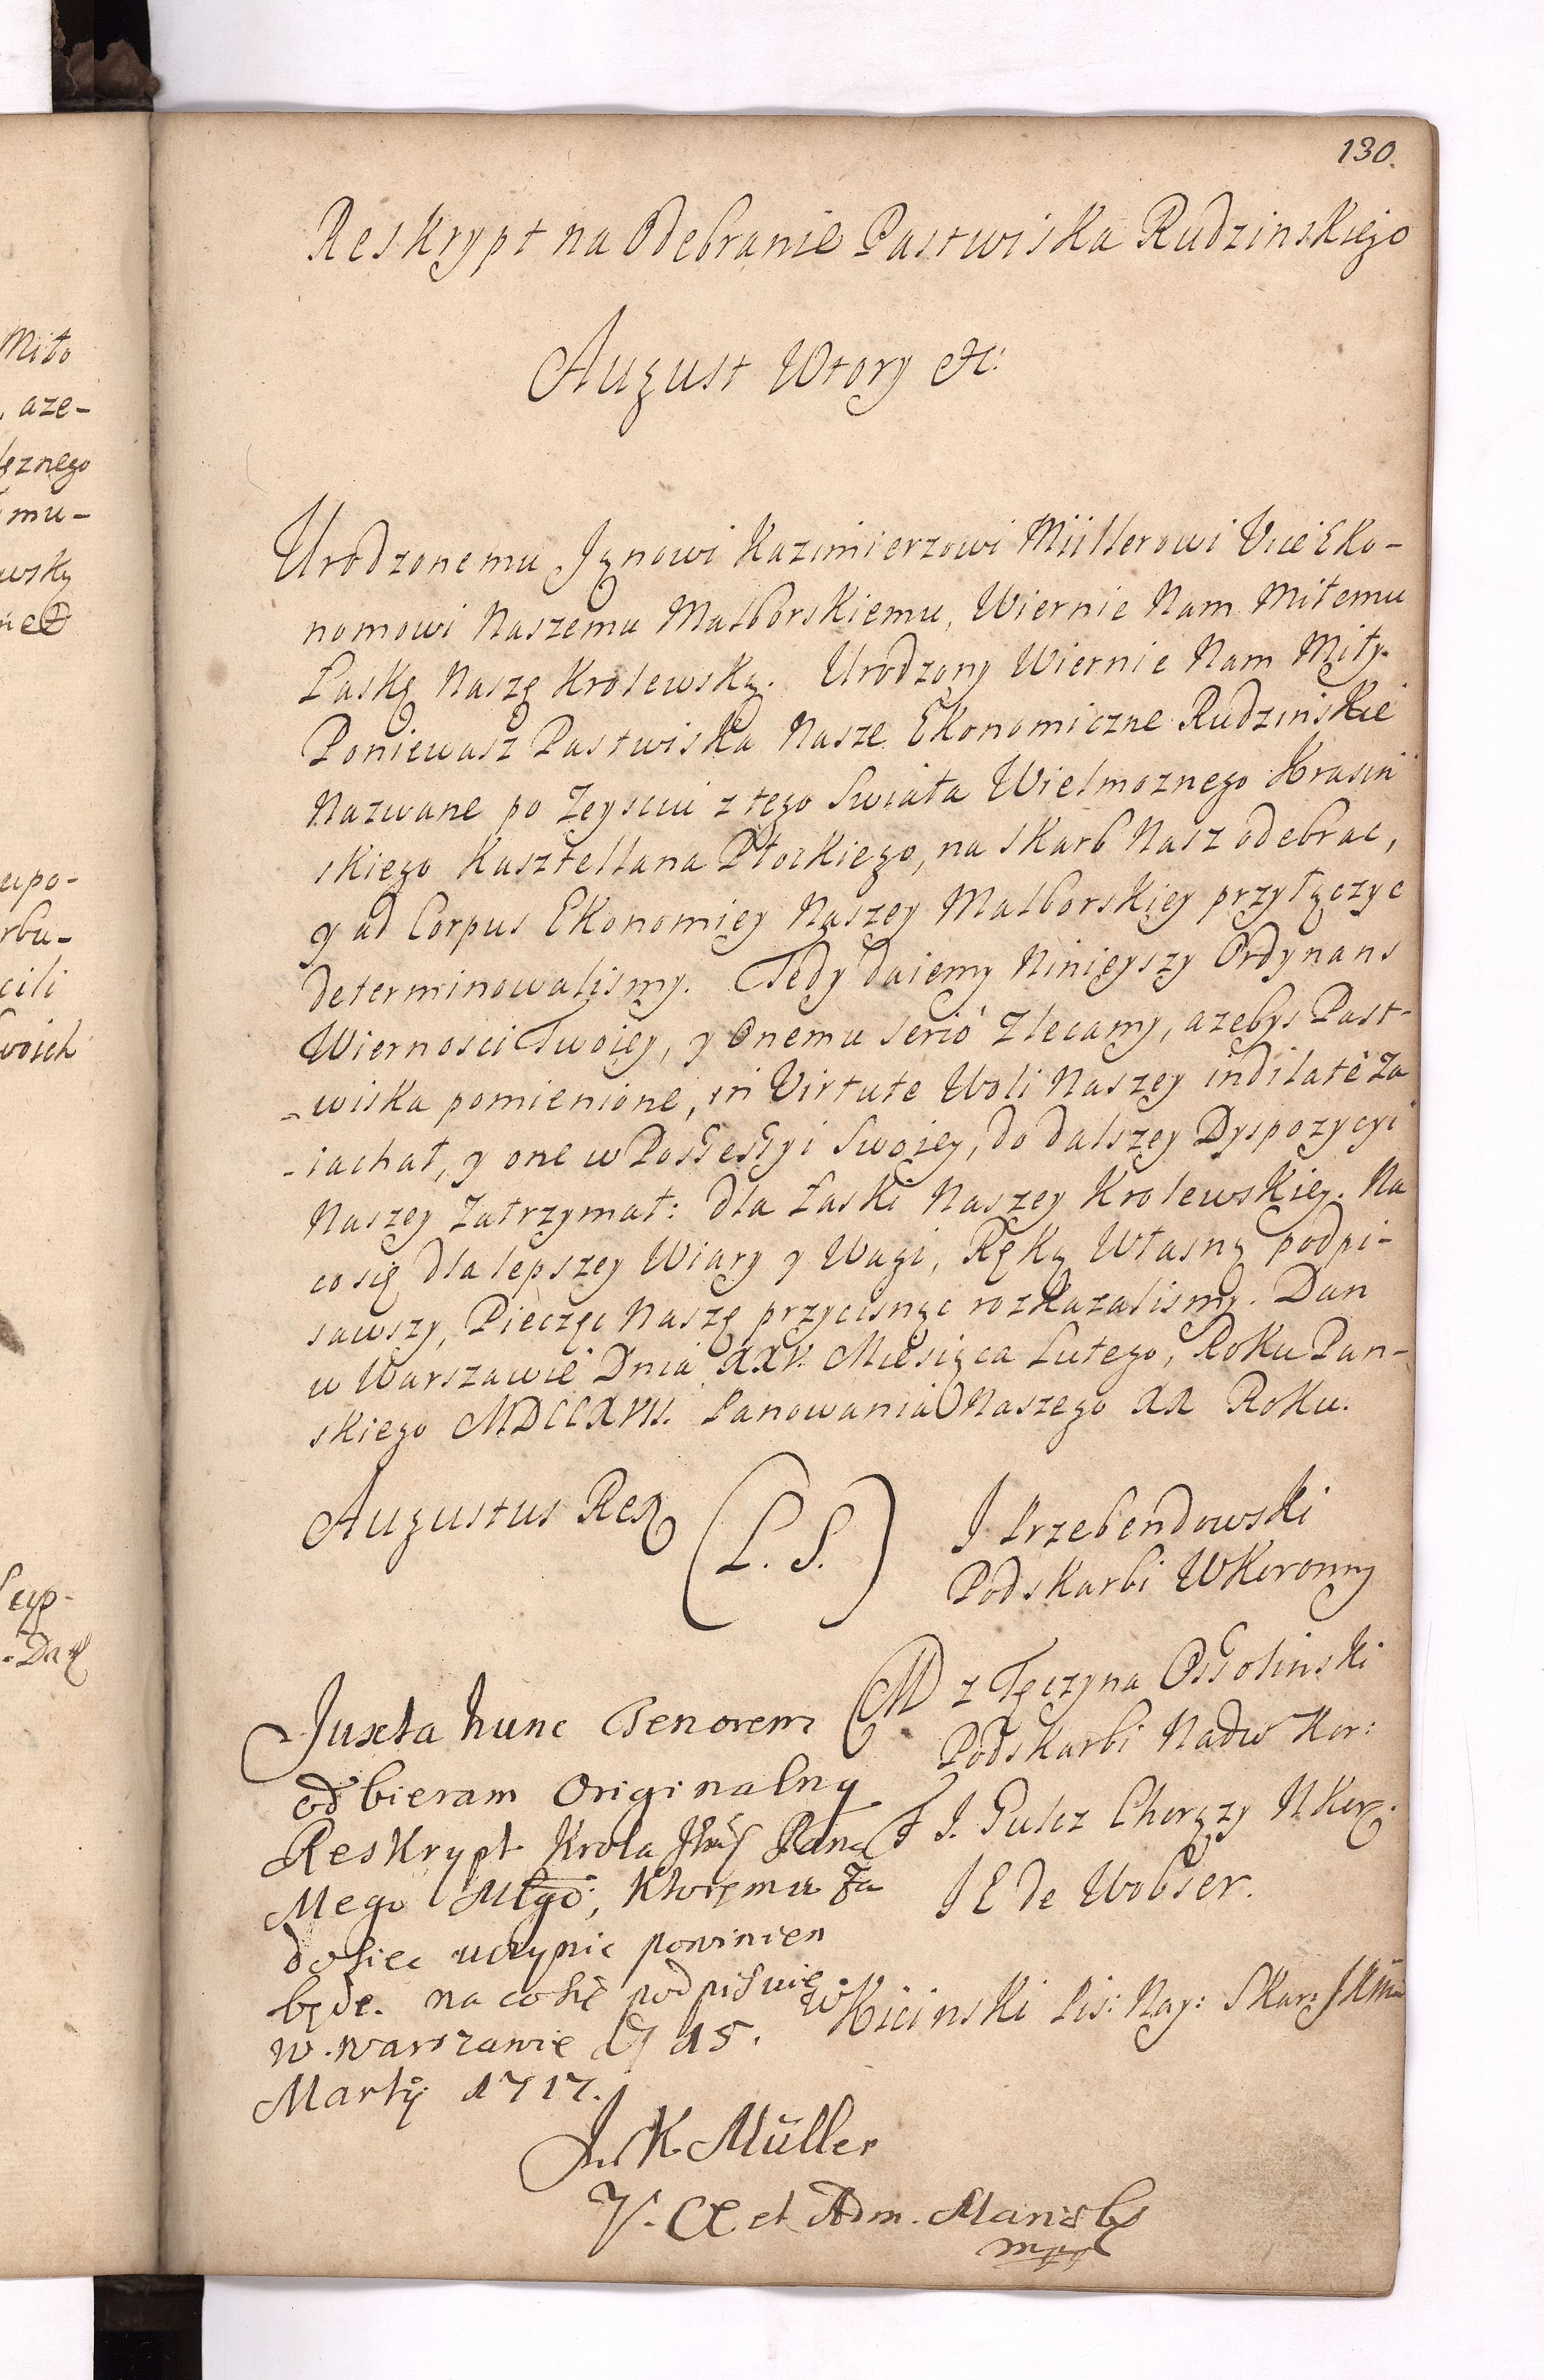 130.
Reskrypt na Odebranie Pastwiska Rudzinskiego
August Wtory etc:
Urodzonemu Jgnowi Kazimierzowi Müllerowi Vice Eko-
nomowi Naszemu Malborskiemu, Wiernie Nam Miłemu
Łaskę Naszę Krolewską. Urodzony Wiernie Nam Miły.
Poniewasz Pastwiska Nasze Ekonomiczne Rudzinskie
Nazwane po Zeysciu z tego Swiata Wielmoznego Krasin
skiego Kasztellana Płockiego, na skarb Nasz odebrac,
y ad Corpus Ekonomiey Naszey Malborskiey przyłączyc
determinowalismy. Tedy daiemy Ninieyszy Ordynans
Wiernosci Twoiey, y Onemu serio Zlecamy, azebys Past-
-wiska pomienione, in Virtute Woli Naszey indilatè Za
-iachał, y one w Possessyi Swoiey, do dalszey Dyspozycyi
Naszey Zatrzymał: dla Łaski Naszey Krolewskiey. Na
co się dla lepszey Wiary y Wagi, Ręką Własną podpi-
sawszy, Pieczęc Naszę przycisnąc rozkazalismy. Dan
w Warszawie Dnia XXV. Miesiąca Lutego, Roku Pan-
skiego MDCCXVII. Panowania Naszego XX Roku.
Augustus Rex (L. S.) J Przebendowski
Podskarbi WKoronny
M z Tęczyna Ossolinski
Podskarbi Nadw Kor:
F J. Gulcz Chorązy NKor.
J E de Wobser.
W Kicinski Pis: Nay: Skar: JKMci
Juxta hunc Tenorem
odbieram Originalny
Reskrypt Krola Jmści Pana
Mego Młgo; Ktoremu Za
dosiec uczynic powinien
będe. na co się podpisuię
w. warszawie d 15.
Martÿ 1717.
J. K Müller
V. Œ et Adm. Marisbs
mpp
Miło
, aze-
mu-
wską
cili
woich